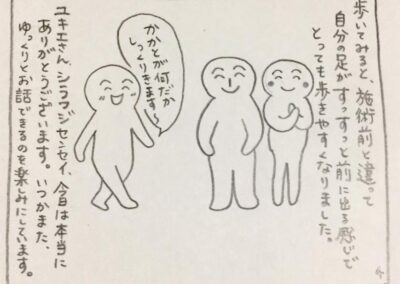 歩いてみると、施術前と違って
自分の足がすっすっと前に出る感じで
とっても歩きやすくなりました。
かかとが何だか
しっくりきます〜
ユキエさん、シラマジセンセイ、今日は本当に
ありがとうございます。いつかまた、
ゆっくりとお話できるのを楽しみにしています。